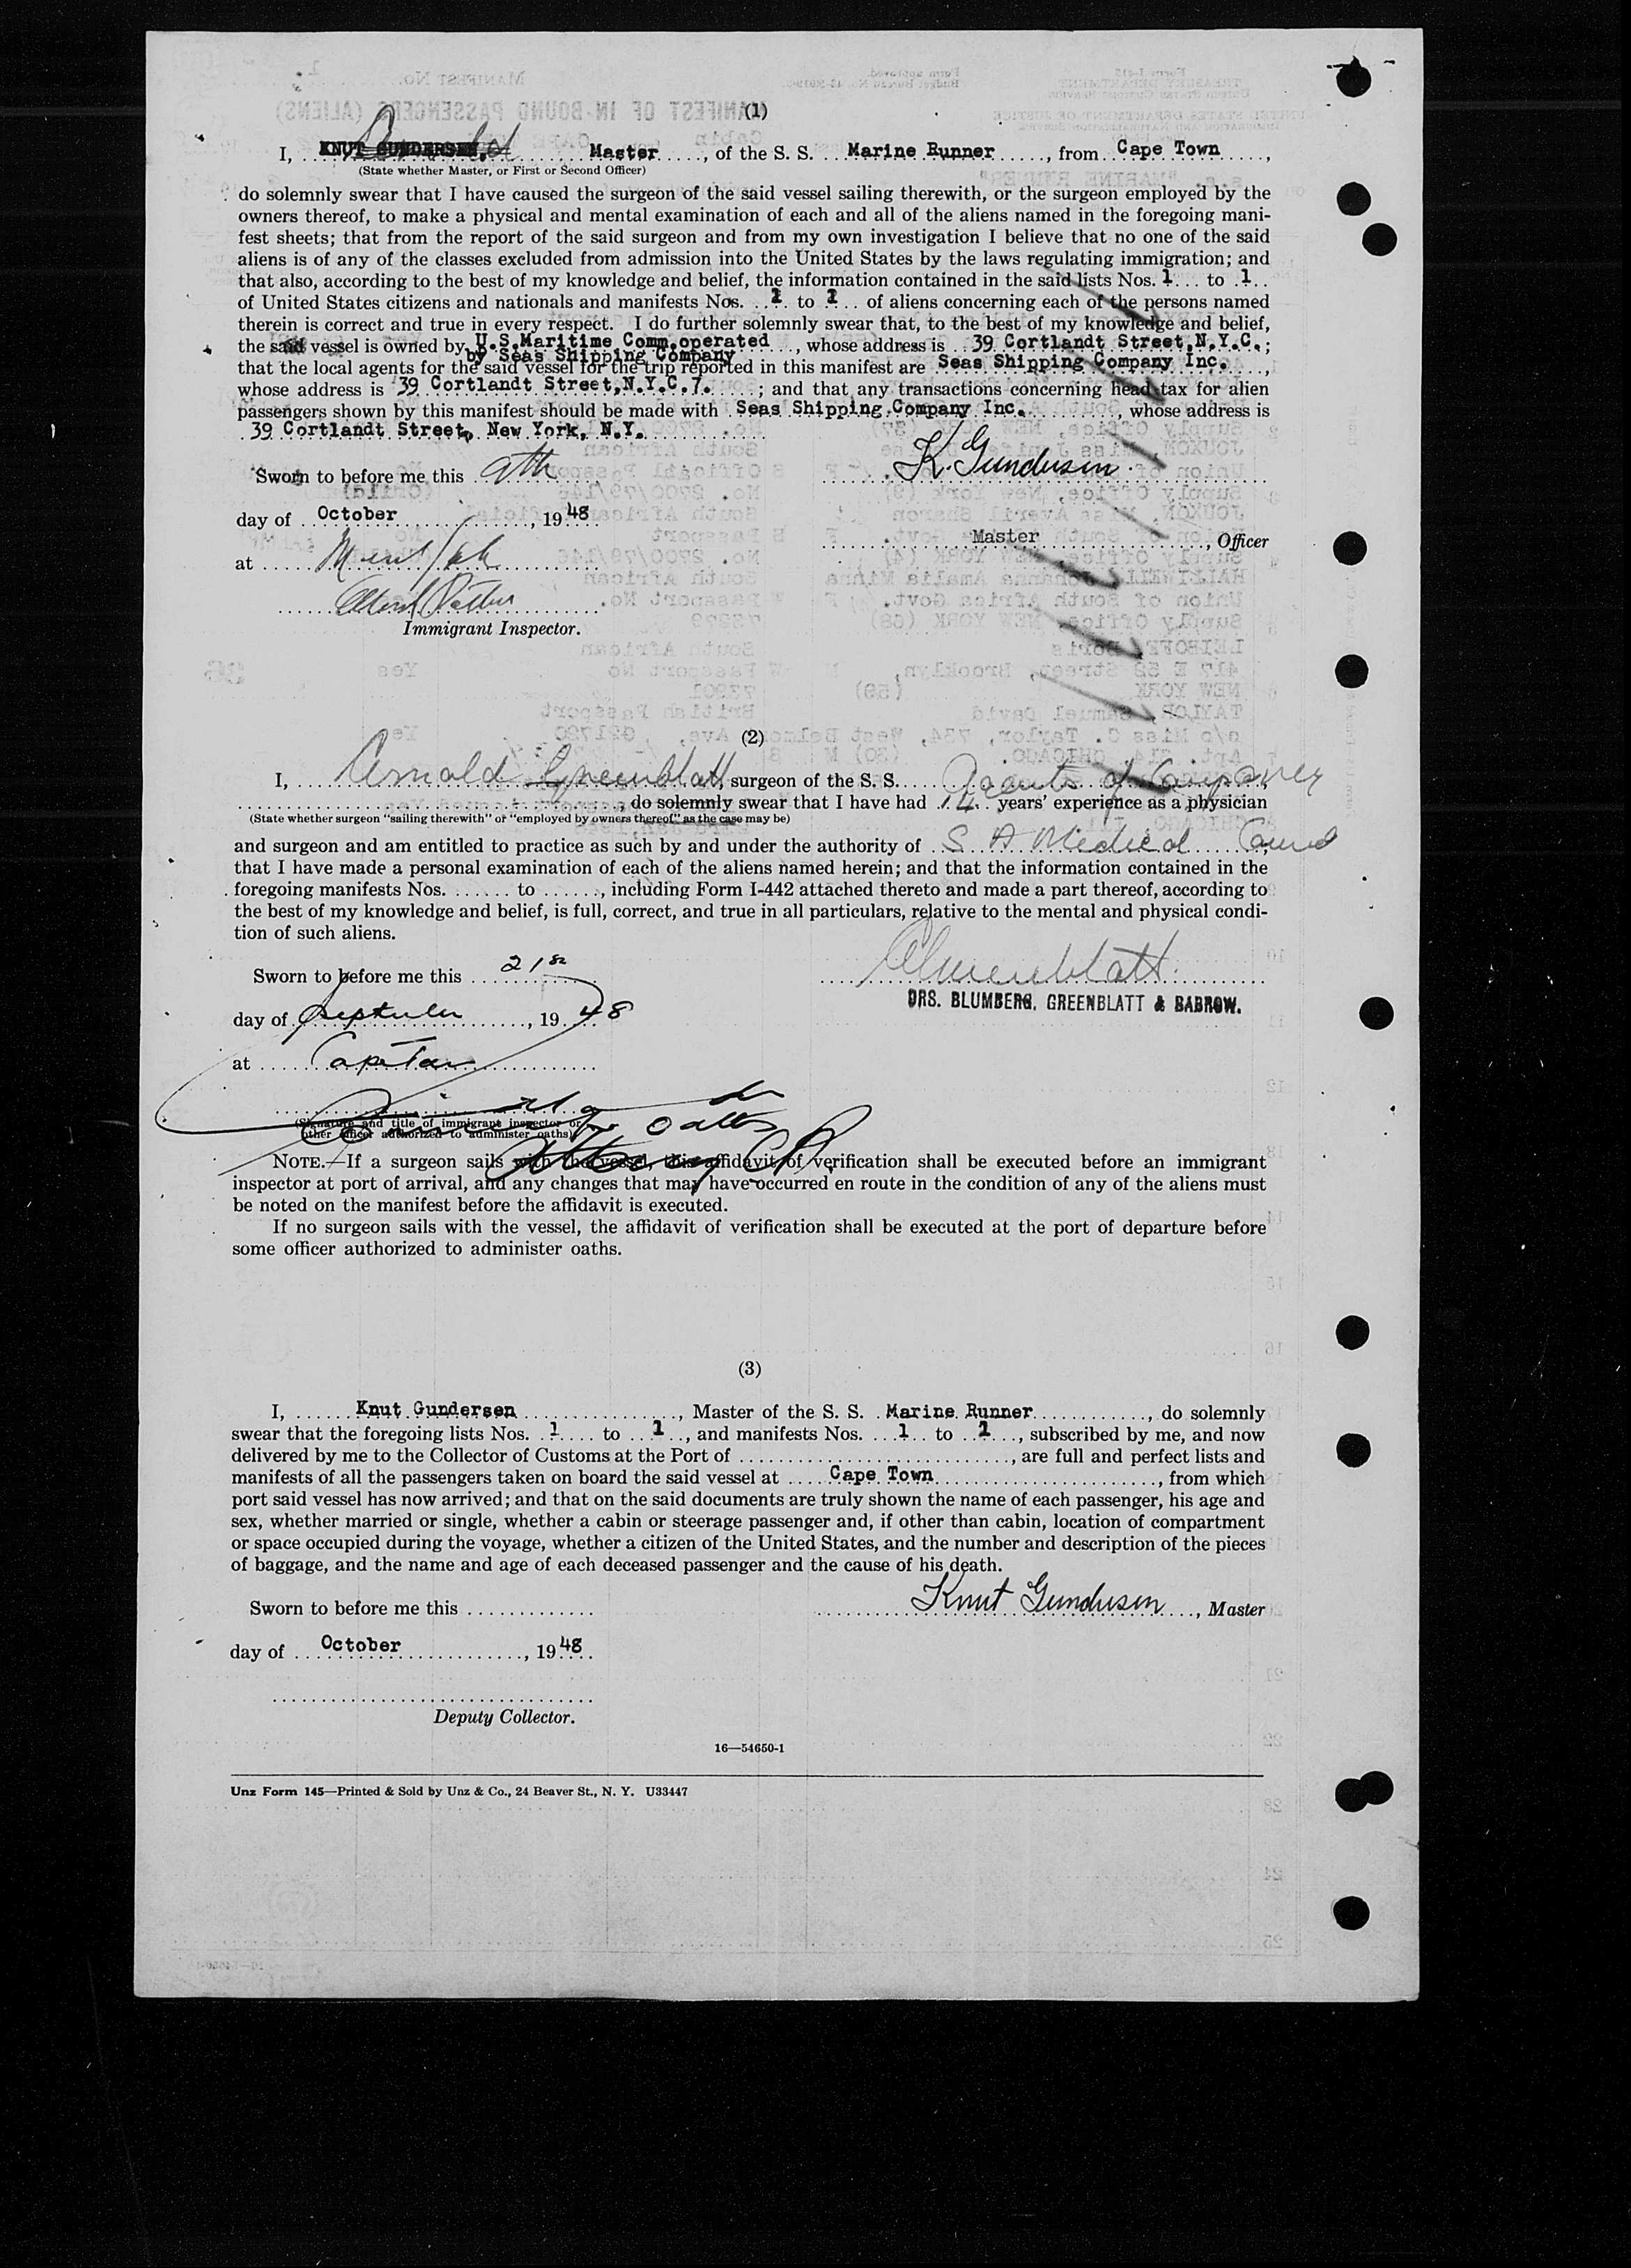 (1)
I, KNUT GUNDERSEN, Master, of the S. S. Marine Runner, from Cape Town,
(State whether Master, or First or Second Officer)
do solemnly swear that I have caused the surgeon of the said vessel sailing therewith, or the surgeon employed by the
owners thereof, to make a physical and mental examination of each and all of the aliens named in the foregoing mani-
fest sheets; that from the report of the said surgeon and from my own investigation I believe that no one of the said
aliens is of any of the classes excluded from admission into the United States by the laws regulating immigration; and
that also, according to the best of my knowledge and belief, the information contained in the said lists Nos. 1 to 1
of United States citizens and nationals and manifests Nos. 1 to 1 of aliens concerning each of the persons named
therein is correct and true in every respect. I do further solemnly swear that, to the best of my knowledge and belief,
the said vessel is owned by U.S.Maritime Comm.operated, whose address is 39 Cortlandt Street,N.Y.C.;
by Seas Shipping Company
that the local agents for the said vessel for the trip reported in this manifest are Seas Shipping Company Inc.,
whose address is 39 Cortlandt Street,N.Y.C.7.; and that any transactions concerning head tax for alien
passengers shown by this manifest should be made with Seas Shipping Company Inc., whose address is
39 Cortlandt Street, New York, N.Y.
Sworn to before me this 9th K. Gundersen
day of October, 1948
Master, Officer
at New York
Immigrant Inspector.
(2)
I, Arnold Greenblatt, surgeon of the S. S. Agents of Company
, do solemnly swear that I have had 14 years' experience as a physician
(State whether surgeon "sailing therewith" or "employed by owners thereof" as the case may be)
and surgeon and am entitled to practice as such by and under the authority of S A Medical Council
that I have made a personal examination of each of the aliens named herein; and that the information contained in the
foregoing manifests Nos. to , including Form I-442 attached thereto and made a part thereof, according to
the best of my knowledge and belief, is full, correct, and true in all particulars, relative to the mental and physical condi-
tion of such aliens.
Sworn to before me this 21st AGreenblatt.
DRS. BLUMBERG, GREENBLATT & BABROW.
day of September, 1948
at Cape Town
(Signature and title of immigrant inspector or
other officer authorized to administer oaths)
NOTE.—If a surgeon sails with the vessel, this affidavit of verification shall be executed before an immigrant
inspector at port of arrival, and any changes that may have occurred en route in the condition of any of the aliens must
be noted on the manifest before the affidavit is executed.
If no surgeon sails with the vessel, the affidavit of verification shall be executed at the port of departure before
some officer authorized to administer oaths.
(3)
I, Knut Gundersen, Master of the S. S. Marine Runner, do solemnly
swear that the foregoing lists Nos. 1 to 1, and manifests Nos. 1 to 1, subscribed by me, and now
delivered by me to the Collector of Customs at the Port of , are full and perfect lists and
manifests of all the passengers taken on board the said vessel at Cape Town, from which
port said vessel has now arrived; and that on the said documents are truly shown the name of each passenger, his age and
sex, whether married or single, whether a cabin or steerage passenger and, if other than cabin, location of compartment
or space occupied during the voyage, whether a citizen of the United States, and the number and description of the pieces
of baggage, and the name and age of each deceased passenger and the cause of his death.
Sworn to before me this Knut Gundersen, Master
day of October, 1948
Deputy Collector.
16—54650-1
Unz Form 145—Printed & Sold by Unz & Co., 24 Beaver St., N. Y. U33447